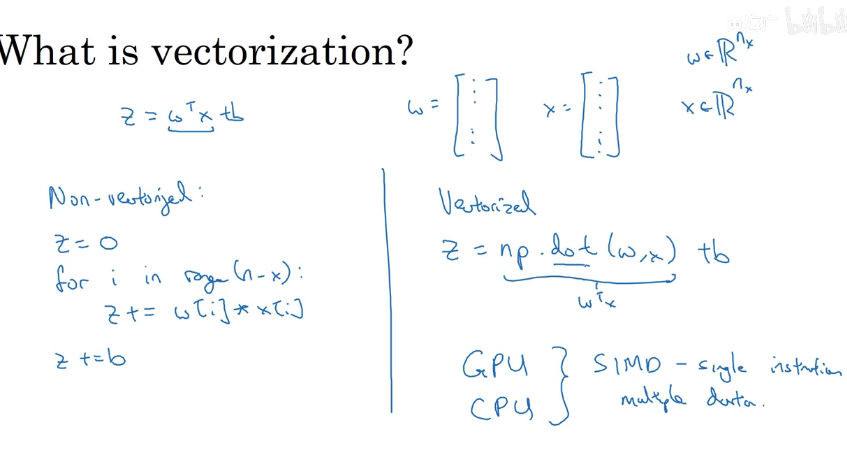 What is vectorization?
z = wᵀx + b
w = [⋮ ⋮] x = [⋮ ⋮]
w ∈ ℝⁿˣ
x ∈ ℝⁿˣ
Non-vectorized:
z = 0
for i in range(n-x):
z += w[i] * x[i]
z += b
Vectorized
z = np.dot(w,x) + b
wᵀx
GPU
CPU
} SIMD - single instruction
multiple data.
bilibili